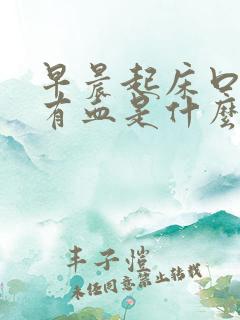 早晨起床口
有血是什麼
丰子愷
未经同意禁止转载